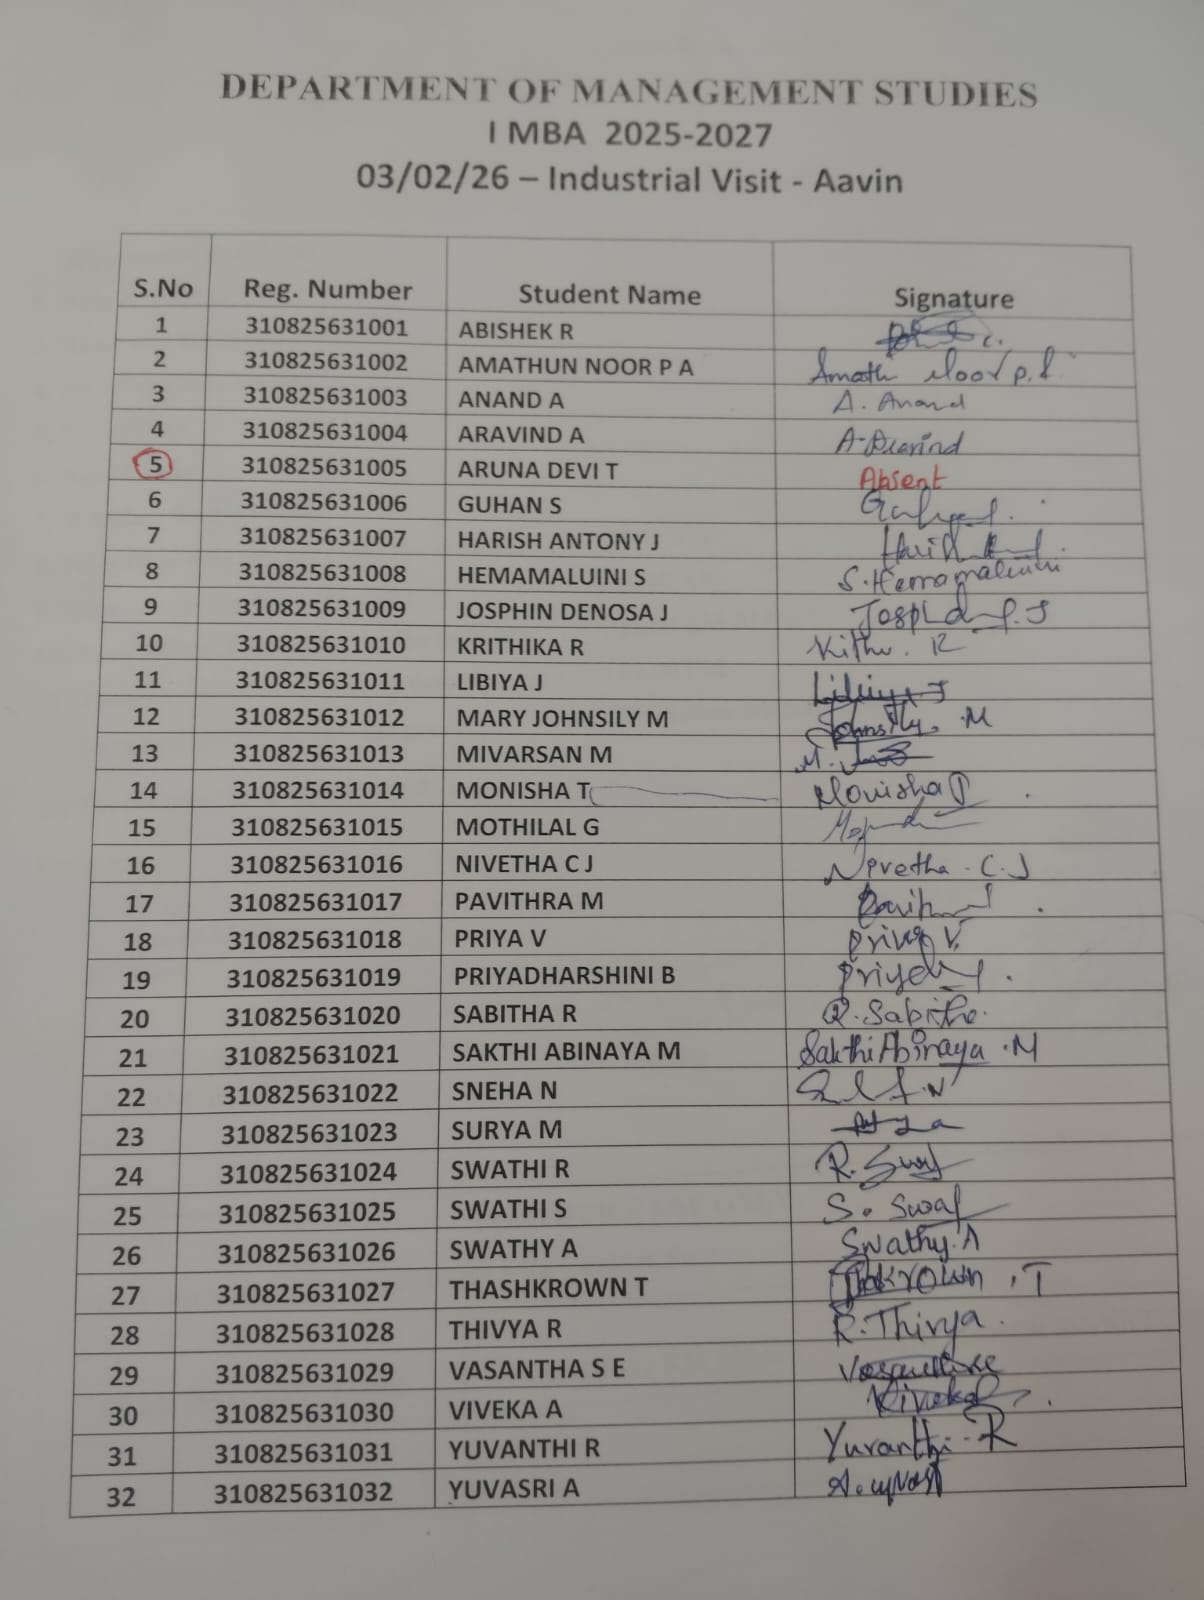 DEPARTMENT OF MANAGEMENT STUDIES
I MBA 2025-2027
03/02/26 – Industrial Visit - Aavin
S.No Reg. Number Student Name Signature
1 310825631001 ABISHEK R
2 310825631002 AMATHUN NOOR P A Amath Noor P.A
3 310825631003 ANAND A A. Anand
4 310825631004 ARAVIND A A. Aravind
5 310825631005 ARUNA DEVI T Absent
6 310825631006 GUHAN S
7 310825631007 HARISH ANTONY J
8 310825631008 HEMAMALUINI S S. Hemamaluini
9 310825631009 JOSPHIN DENOSA J
10 310825631010 KRITHIKA R
11 310825631011 LIBIYA J Libiya J
12 310825631012 MARY JOHNSILY M Johnsily. M
13 310825631013 MIVARSAN M
14 310825631014 MONISHA T Monisha T
15 310825631015 MOTHILAL G
16 310825631016 NIVETHA C J Nivetha. C.J
17 310825631017 PAVITHRA M
18 310825631018 PRIYA V Priya V.
19 310825631019 PRIYADHARSHINI B
20 310825631020 SABITHA R R. Sabitha.
21 310825631021 SAKTHI ABINAYA M Sakthi Abinaya . M
22 310825631022 SNEHA N
23 310825631023 SURYA M
24 310825631024 SWATHI R
25 310825631025 SWATHI S
26 310825631026 SWATHY A Swathy. A
27 310825631027 THASHKROWN T
28 310825631028 THIVYA R R. Thivya.
29 310825631029 VASANTHA S E
30 310825631030 VIVEKA A
31 310825631031 YUVANTHI R Yuvanthi. R
32 310825631032 YUVASRI A